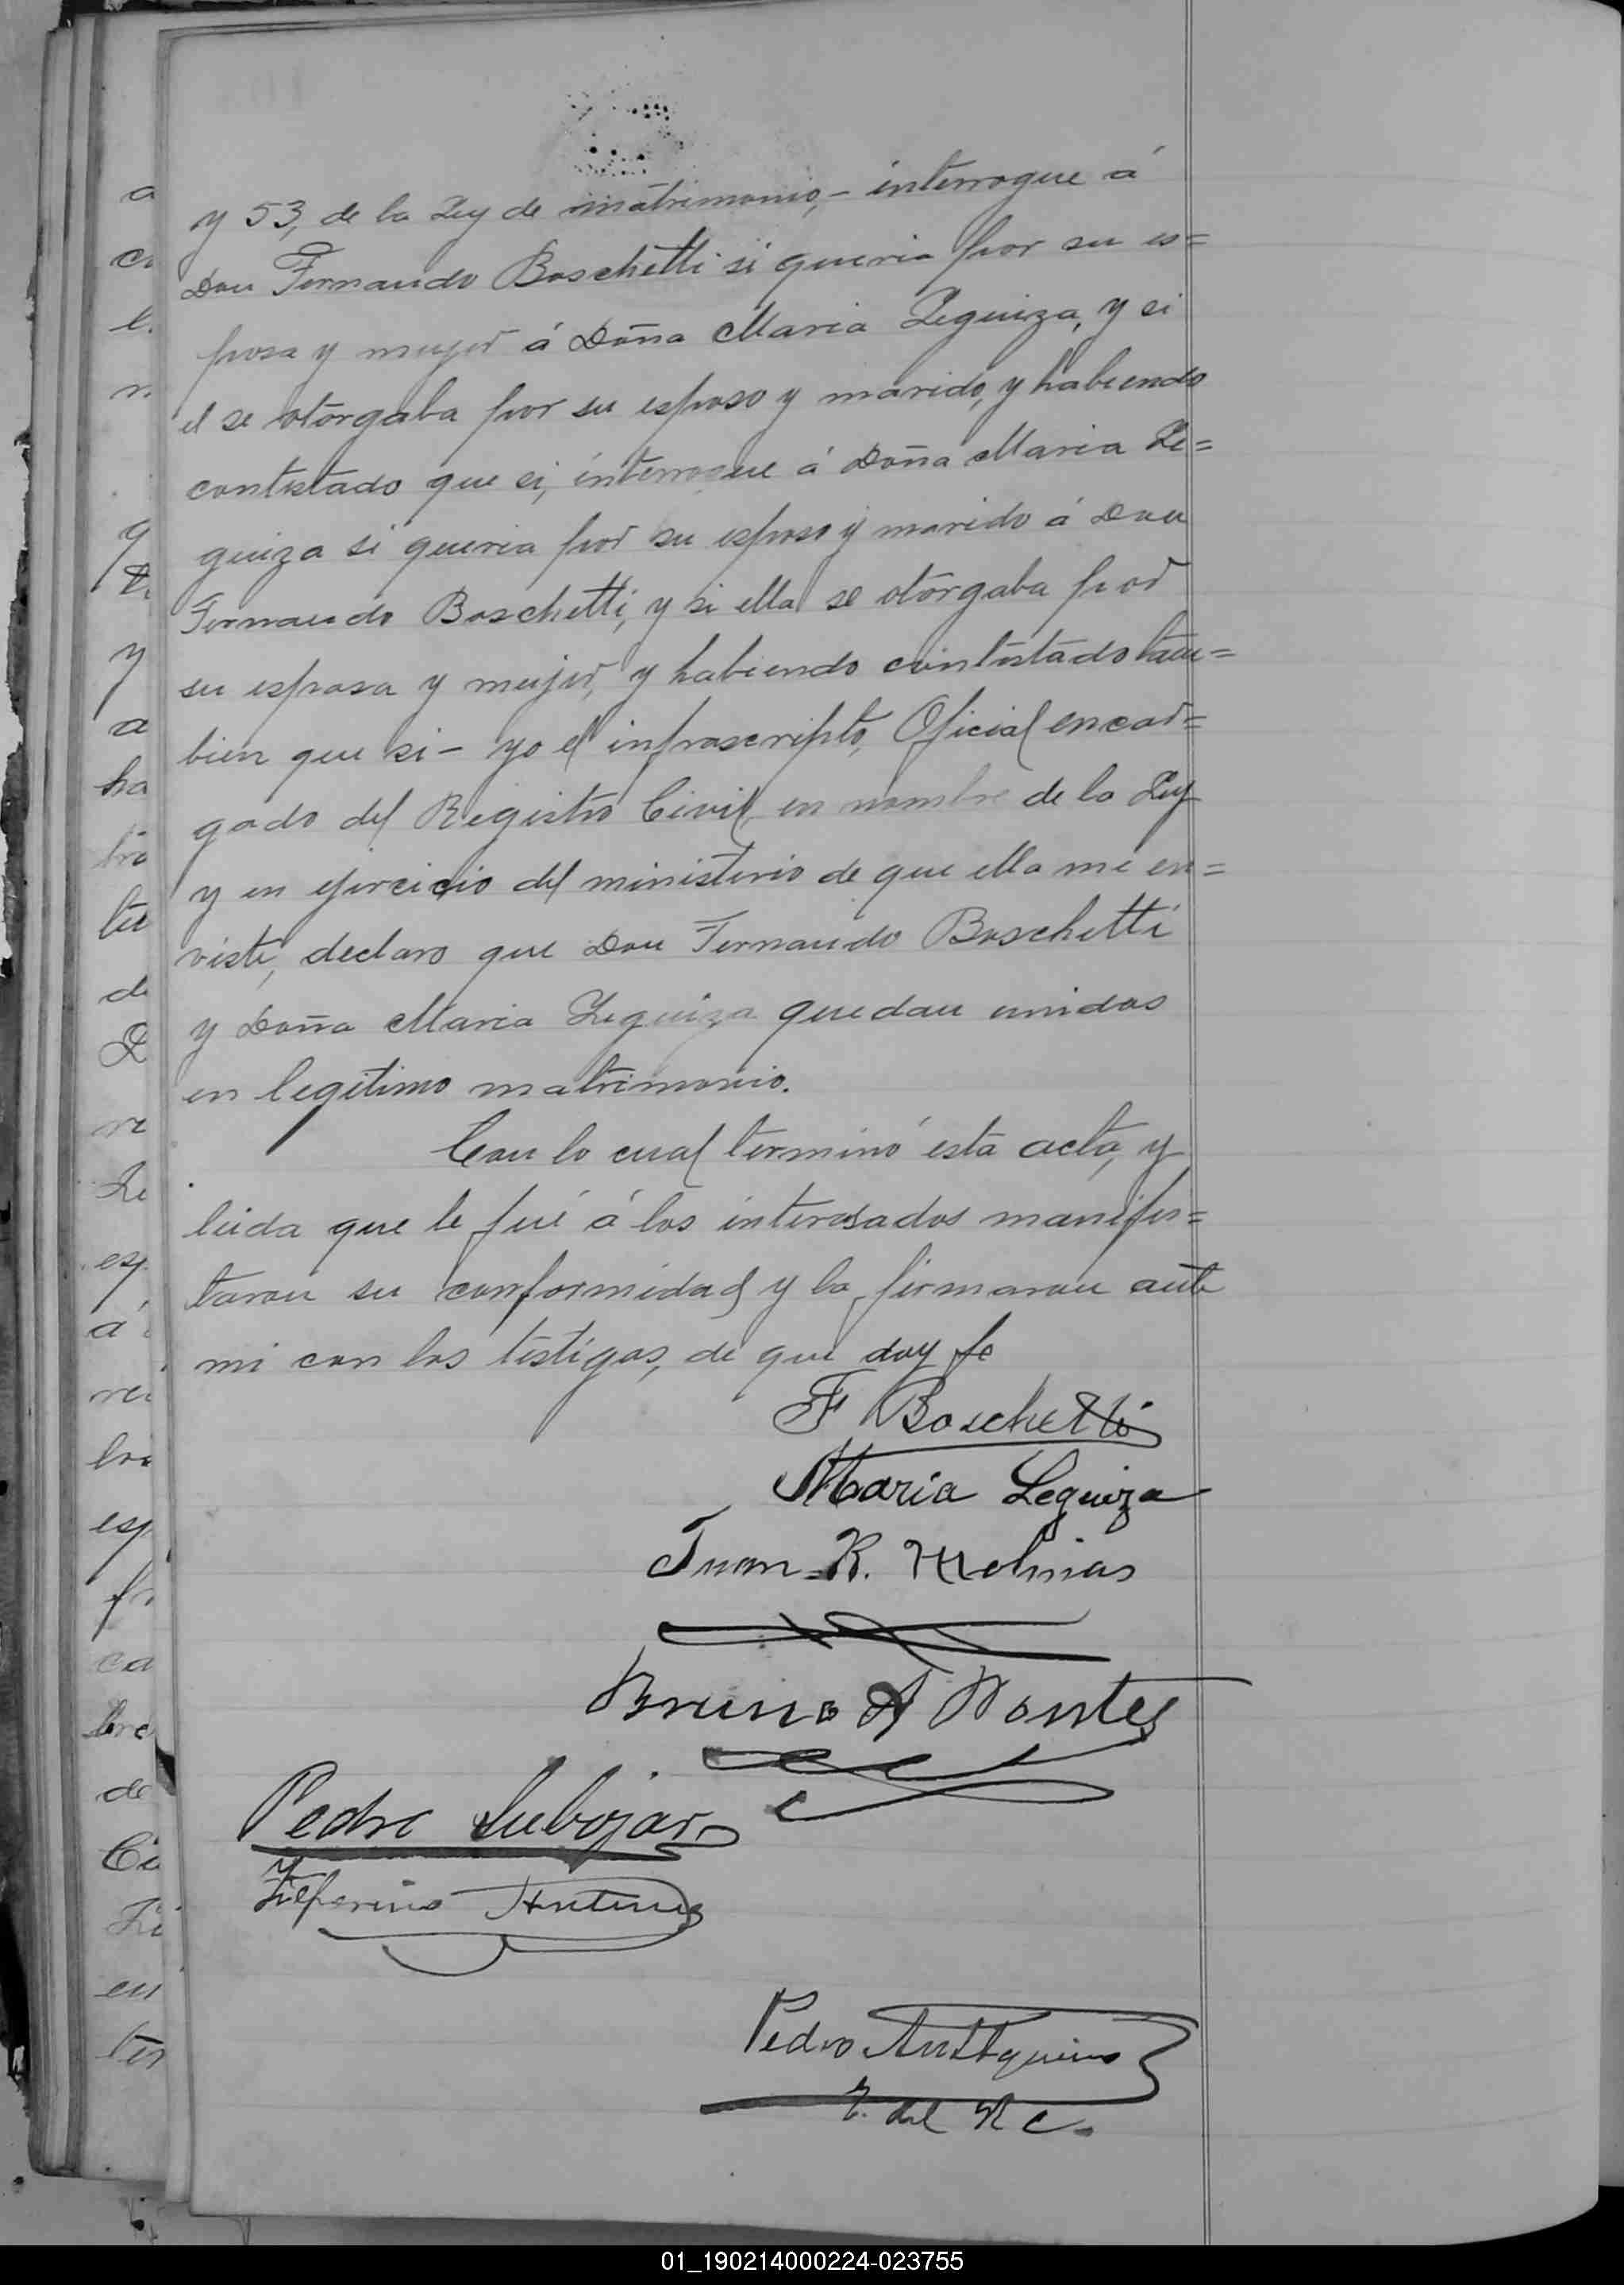 y 53, de la Ley de matrimonio, - interrogue á
Don Fernando Boschetti si queria por su es=
posa y mujer á Doña Maria Leguiza, y si
el se otorgaba por su esposo y marido, y habiendo
contestado que si, interrogue á Doña Maria Le=
guiza si queria por su esposo y marido á Don
Fernando Boschetti, y si ella se otorgaba por
su esposa y mujer, y habiendo contestado tam=
bien que si - yo el infrascripto, Oficial encar=
gado del Registro Civil, en nombre de la Ley
y en ejercicio del ministerio de que ella me en=
viste, declaro que Don Fernando Boschetti
y Doña Maria Leguiza quedan unidos
en legitimo matrimonio.
Con lo cual terminó esta acta, y
leida que le fué á los interesados manifes=
taron su conformidad y la firmaron ante
mi con los testigos, de que doy fe
F Boschetti
Maria Leguiza
Juan R. Molinas
Bruno A Montes
Pedro
Pedro
E. del R C.
01_190214000224-023755